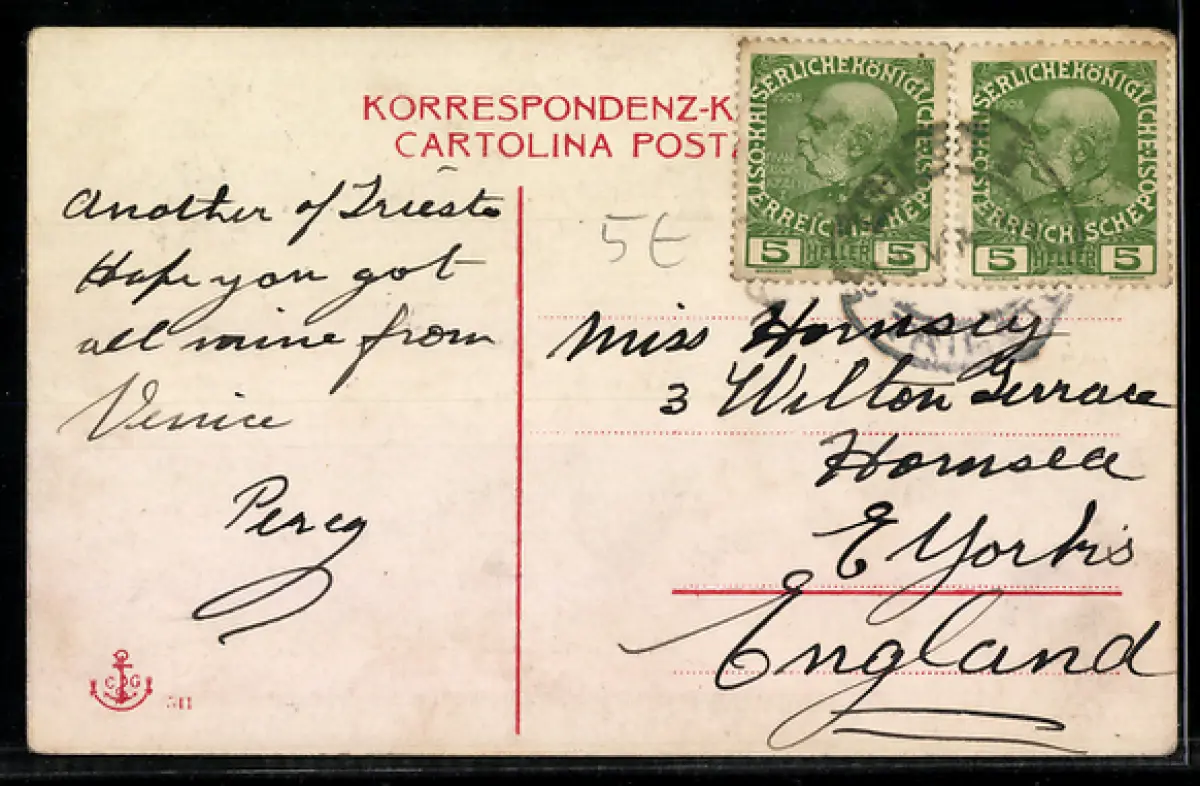 KORRESPONDENZ-K
CARTOLINA POSTA
KAISERLICHE KÖNIGLICHE ÖSTERREICHISCHE POST
1908
5 HELLER 5
KAISERLICHE KÖNIGLICHE ÖSTERREICHISCHE POST
1908
5 HELLER 5
5€
Another of Trieste
Hope you got
all mine from
Venice
Percy
Miss Hornsey
3 Wilton Terrace
Hornsea
E Yorks
England
C G
511